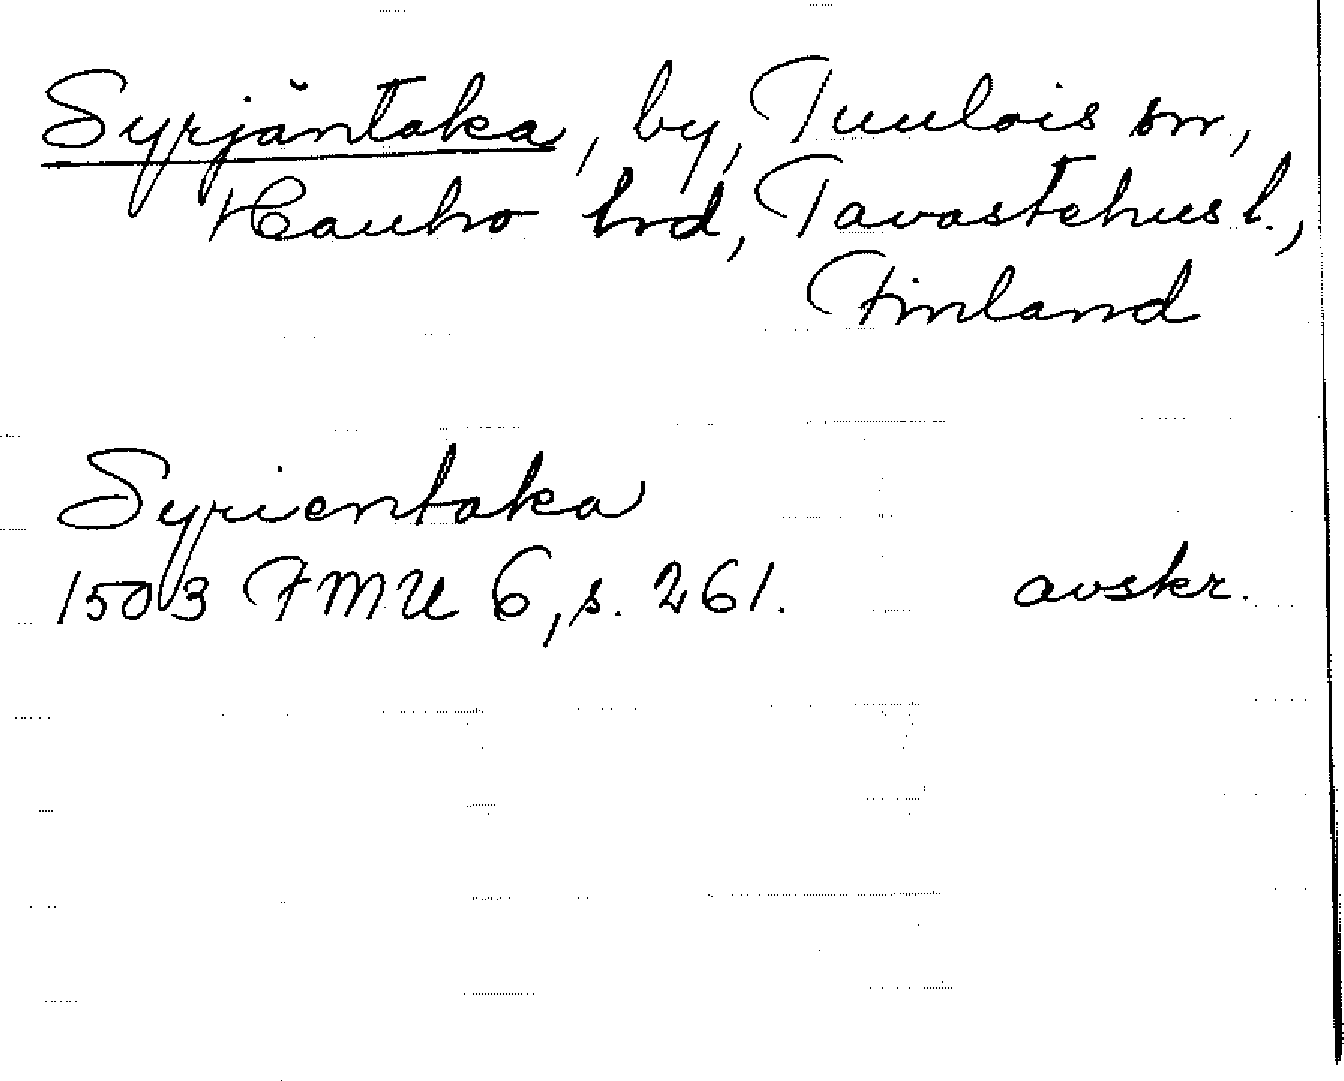 Syrjäntaka, by, Tuulois sn,
Hauho hd, Tavastehus l.,
Finland
Syrientaka
1503 FMU 6, s. 261. avskr.